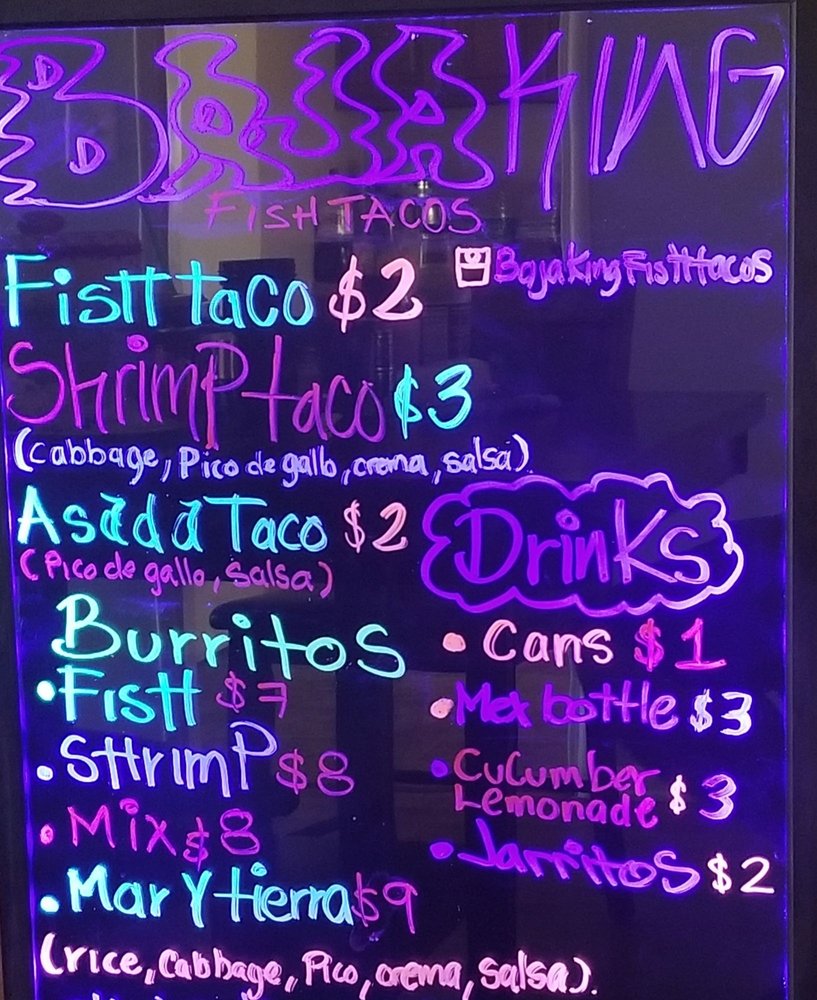 BAJA KING
FISH TACOS
BajaKingFisHtacos
FisH taco $2
ShrimP taco $3
(cabbage, Pico de gallo, crema, salsa)
Asada Taco $2
(Pico de gallo, salsa)
Burritos
• FisH $7
• SHrimP $8
• Mix $8
• Mar Y tierra $9
(rice, Cabbage, Pico, crema, salsa).
Drinks
• Cans $1
• Mex bottle $3
• Cucumber
Lemonade $3
• Jarritos $2